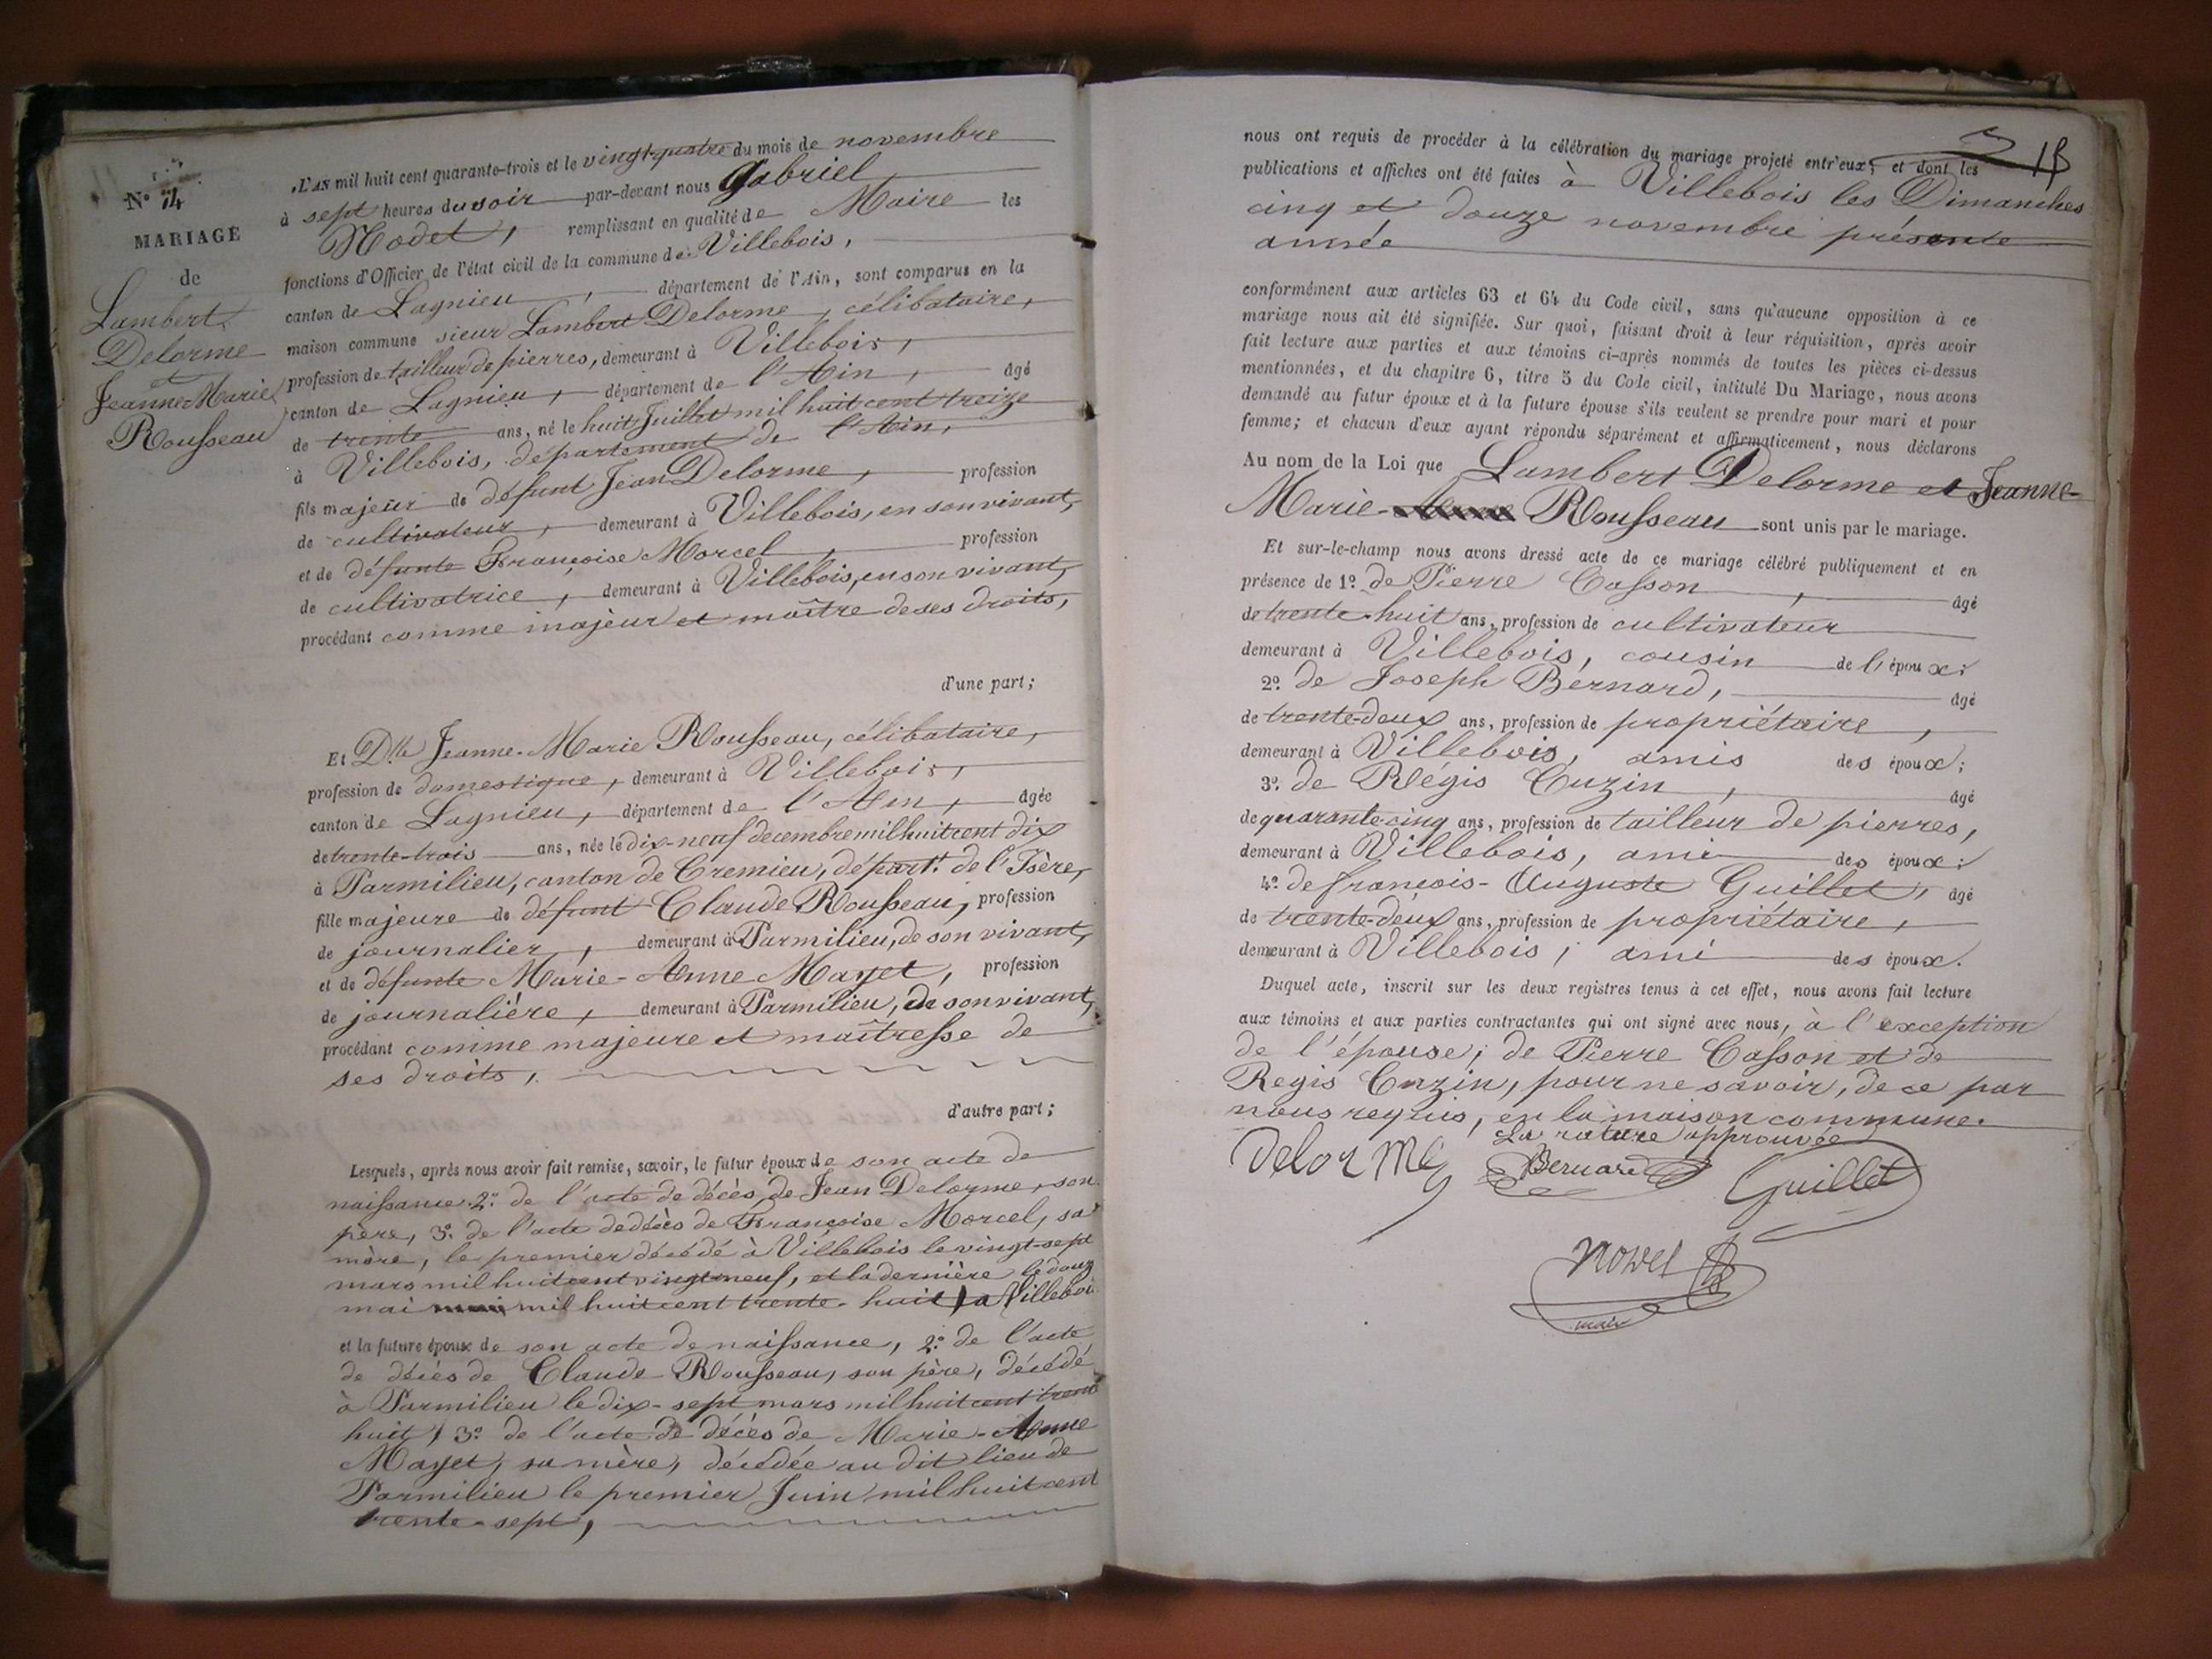 N.º 14
MARIAGE
de
Lambert
Delorme
et
Jeanne Marie
Rousseau
L'AN mil huit cent quarante-trois et le vingt-quatre du mois de novembre
à sept heures du soir par-devant nous Gabriel
Nodet, remplissant en qualité de Maire les
fonctions d'Officier de l'état civil de la commune de Villebois,
canton de Lagnieu, département de l'Ain, sont comparus en la
maison commune sieur Lambert Delorme, célibataire,
profession de tailleur de pierres, demeurant à Villebois,
canton de Lagnieu, département de l'Ain, âgé
de trente ans, né le huit Juillet mil huit cent treize
à Villebois, département de l'Ain,
fils majeur de défunt Jean Delorme, profession
de cultivateur, demeurant à Villebois, en son vivant,
et de défunte Françoise Morcel, profession
de cultivatrice, demeurant à Villebois, en son vivant,
procédant comme majeur et maître de ses droits,
d'une part;
Et Dlle Jeanne-Marie Rousseau, célibataire,
profession de domestique, demeurant à Villebois,
canton de Lagnieu, département de l'Ain, âgée
de trente-trois ans, née le dix-neuf decembre mil huit cent dix
à Parmilieu, canton de Cremieu, départ.t de l'Isère,
fille majeure de défunt Claude Rousseau, profession
de journalier, demeurant à Parmilieu, de son vivant,
et de défunte Marie-Anne Mayet, profession
de journalière, demeurant à Parmilieu, de son vivant,
procédant comme majeure et maîtresse de
ses droits,
d'autre part;
Lesquels, après nous avoir fait remise, savoir, le futur époux de son acte de
naissance. 2.º de l'acte de décès de Jean Delorme, son
père, 3.º de l'acte de décès de Françoise Morcel, sa
mère, le premier décédé à Villebois le vingt-sept
mars mil huit cent vingt neuf, et la dernière le douze
mai mil huit cent trente-huit, à Villebois
et la future épouse de son acte de naissance, 2.º de l'acte
de décès de Claude Rousseau, son père, décédé
à Parmilieu le dix-sept mars mil huit cent trente
huit, 3.º de l'acte de décès de Marie-Anne
Mayet, sa mère, décédée au dit lieu de
Parmilieu le premier Juin mil huit cent
trente-sept,
nous ont requis de procéder à la célébration du mariage projeté entr'eux; et dont les
publications et affiches ont été faites à Villebois les Dimanches
cinq et douze novembre présente
année
conformément aux articles 63 et 64 du Code civil, sans qu'aucune opposition à ce
mariage nous ait été signifiée. Sur quoi, faisant droit à leur réquisition, après avoir
fait lecture aux parties et aux témoins ci-après nommés de toutes les pièces ci-dessus
mentionnées, et du chapitre 6, titre 5 du Code civil, intitulé Du Mariage, nous avons
demandé au futur époux et à la future épouse s'ils veulent se prendre pour mari et pour
femme; et chacun d'eux ayant répondu séparément et affirmativement, nous déclarons
Au nom de la Loi que Lambert Delorme et Jeanne-
Marie- Rousseau sont unis par le mariage.
Et sur-le-champ nous avons dressé acte de ce mariage célébré publiquement et en
présence de 1.º de Pierre Casson, âgé
de trente-huit ans, profession de cultivateur
demeurant à Villebois, cousin de l'époux;
2.º de Joseph Bernard, âgé
de trente-deux ans, profession de propriétaire,
demeurant à Villebois, amis des époux;
3.º de Régis Cuzin, âgé
de quarante-cinq ans, profession de tailleur de pierres,
demeurant à Villebois, ami des époux;
4.º de françois-Auguste Guillet, âgé
de trente-deux ans, profession de propriétaire,
demeurant à Villebois, ami des époux.
Duquel acte, inscrit sur les deux registres tenus à cet effet, nous avons fait lecture
aux témoins et aux parties contractantes qui ont signé avec nous, à l'exception
de l'épouse; de Pierre Casson et de
Regis Cuzin, pour ne savoir, de ce par
nous requis, en la maison commune.
La rature approuvée
Delorme Bernard Guillet
Nodet
maire